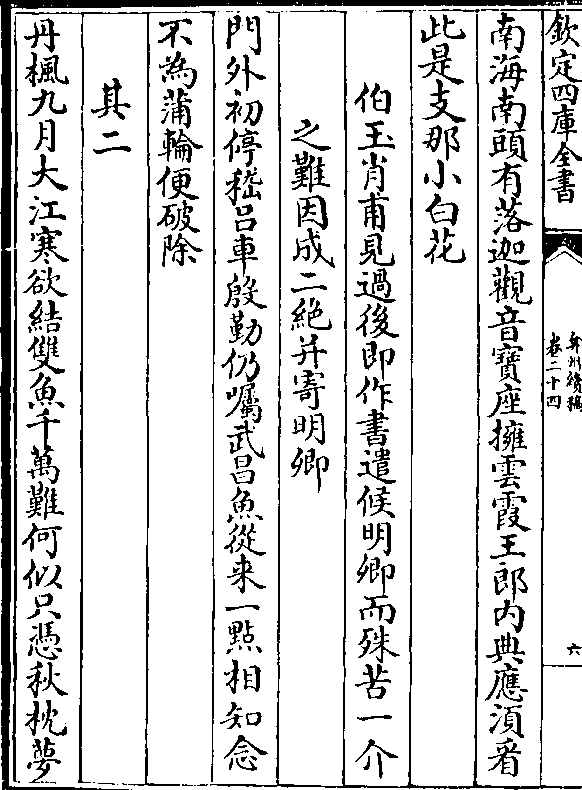 欽定四庫全書
弇州續稿
卷二十四
六
南海南頭有落迦觀音寶座擁雲霞王郎內典應須看
此是支那小白花
伯玉肖甫見過後即作書遣候明卿而殊苦一介
之難因成二絶并寄明卿
門外初停嵇呂車殷勤仍囑武昌魚從来一點相知念
不為蒲輪便破除
其二
丹楓九月大江寒欲結雙魚千萬難何似只憑秋枕夢